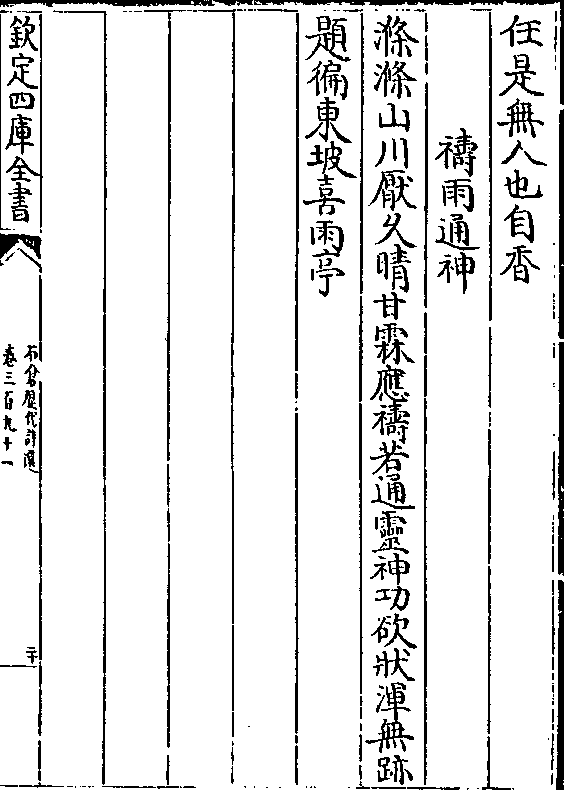 任是無人也自香
禱雨通神
滌滌山川厭久晴甘霖應禱若通靈神功欲狀渾無跡
題徧東坡喜雨亭
欽定四庫全書
石倉歷代詩選
卷三百九十一
二十